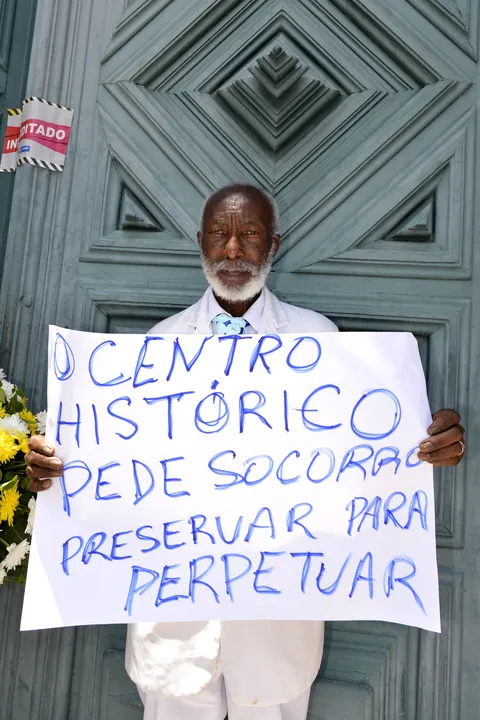 O CENTRO
HISTÓRICO
PEDE SOCORRO
PRESERVAR PARA
PERPETUAR